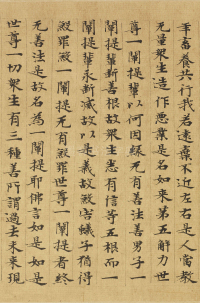 羊畜養共行我若遠棄不近左右是人當教
无量衆生造作惡業是名如來第五解力世
尊一闡提輩以何因緣无有善法善男子一
闡提輩斷善根故衆生悉有信等五根而一
闡提輩永斷滅故以是義故殺害蟻子猶得
殺罪殺一闡提无有殺罪世尊一闡提者終
无善法是故名為一闡提耶佛言如是如是
世尊一切衆生有三種善所謂過去未來現